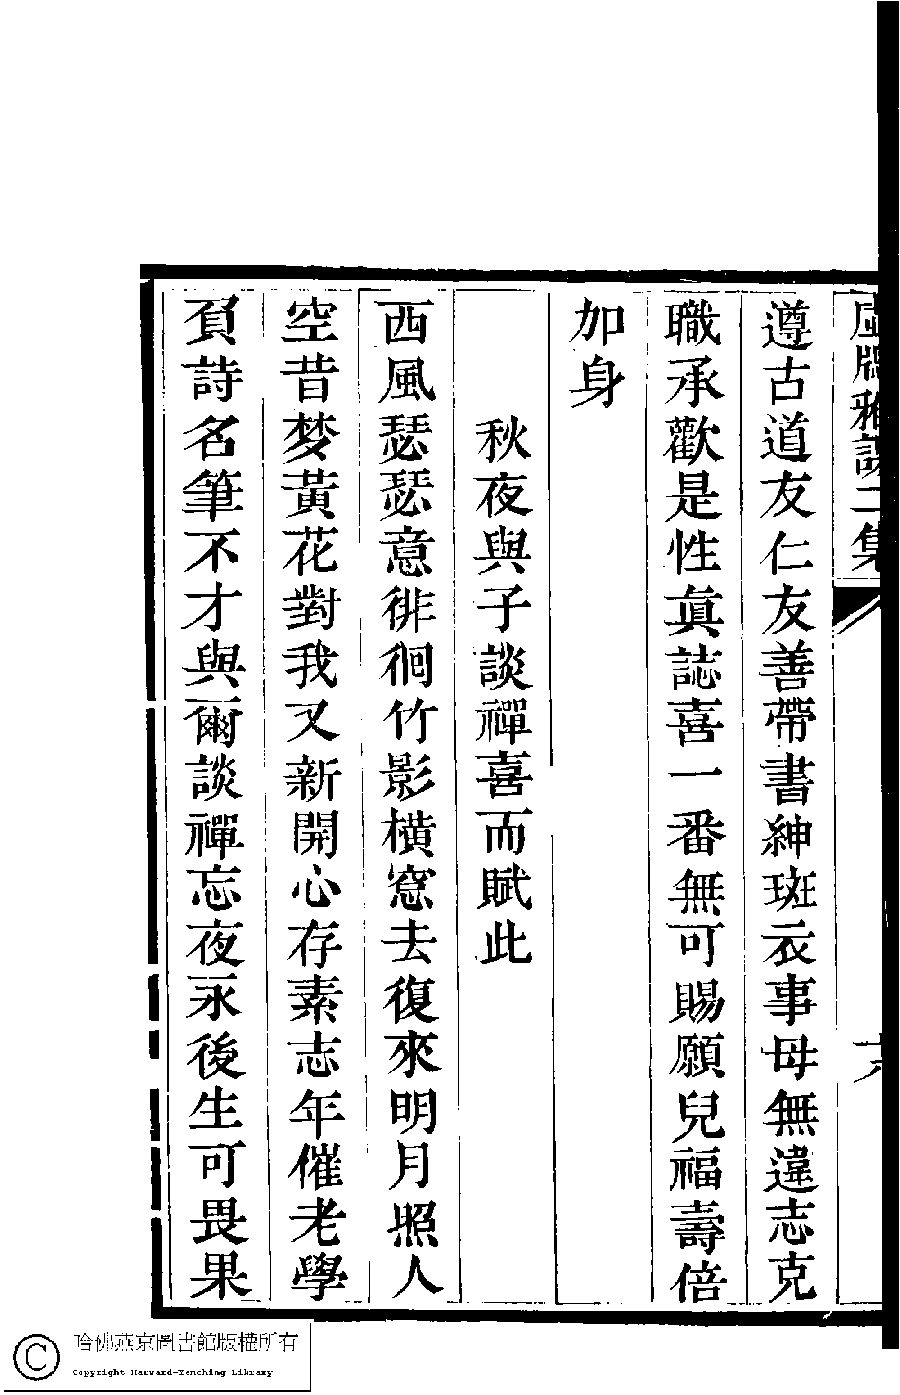 雅謨二集
遵古道友仁友善帶書紳斑衣事母無違志克
職承歡是性眞誌喜一番無可賜願兒福壽倍
加身
秋夜與子談禪喜而賦此
西風瑟瑟意徘徊竹影橫窓去復來明月照人
空昔梦黃花對我又新開心存素志年催老學
負詩名筆不才與爾談禪忘夜永後生可畏果
哈佛燕京圖書館版權所有
Copyright Harvard-Yenching Library